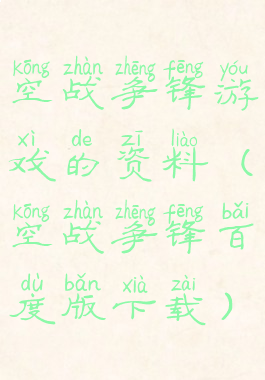 kōng zhàn zhēng fēng yóu
空战争锋游
xì de zī liào
戏的资料（
kōng zhàn zhēng fēng bǎi
空战争锋百
dù bǎn xià zài
度版下载）